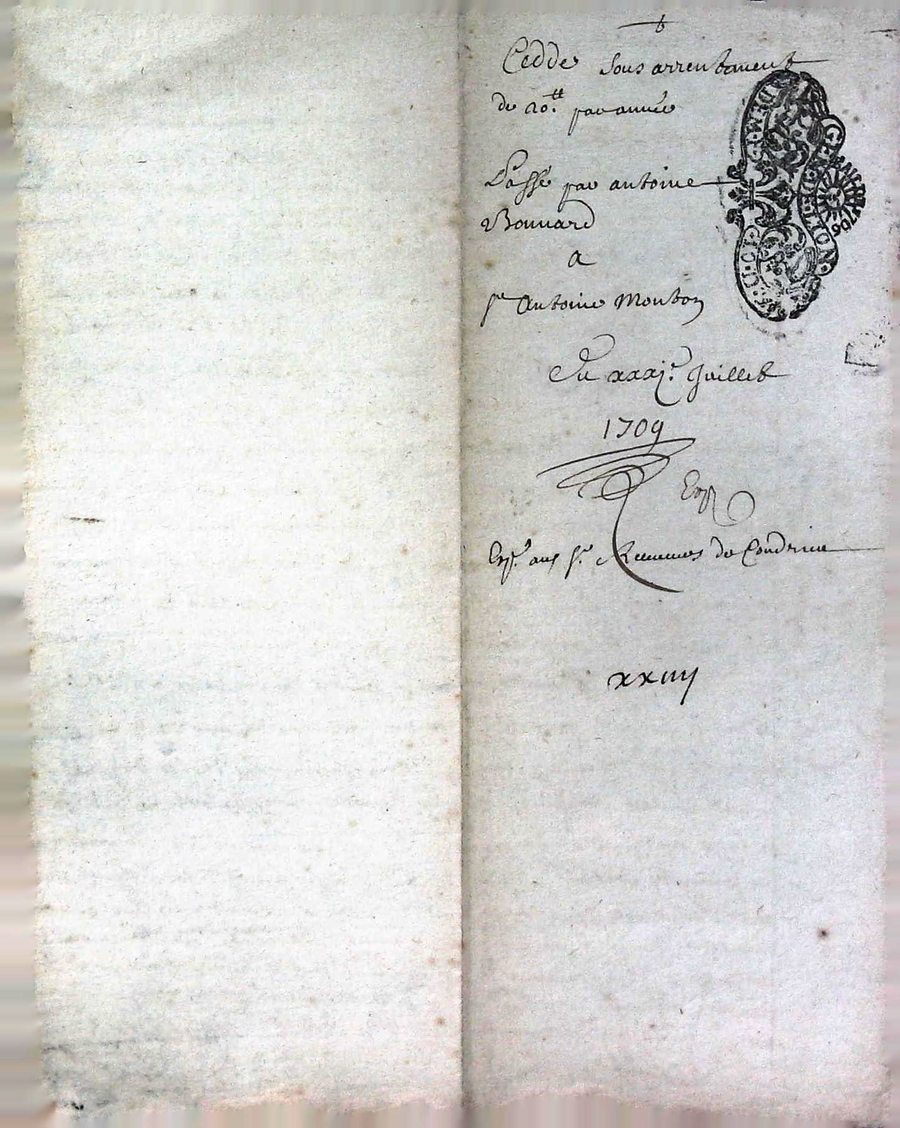 Cedde Sous arrentament
de 20.tt par année
Passé par antoine
Bonnard
a
sr Antoine Mouton
Du xxxje. Juillet
1709
Exp.
Exp.e aux sr. de Condrieu
xxiiij